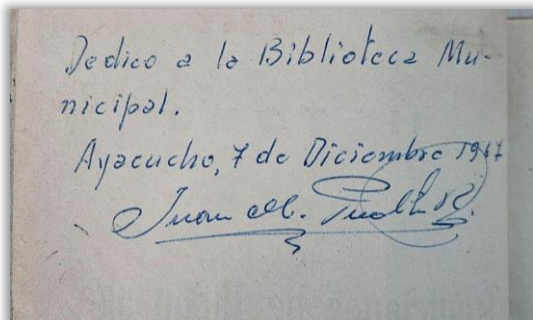 Dedico a la Biblioteca Mu-
nicipal.
Ayacucho, 7 de Diciembre 1967
Juan M.